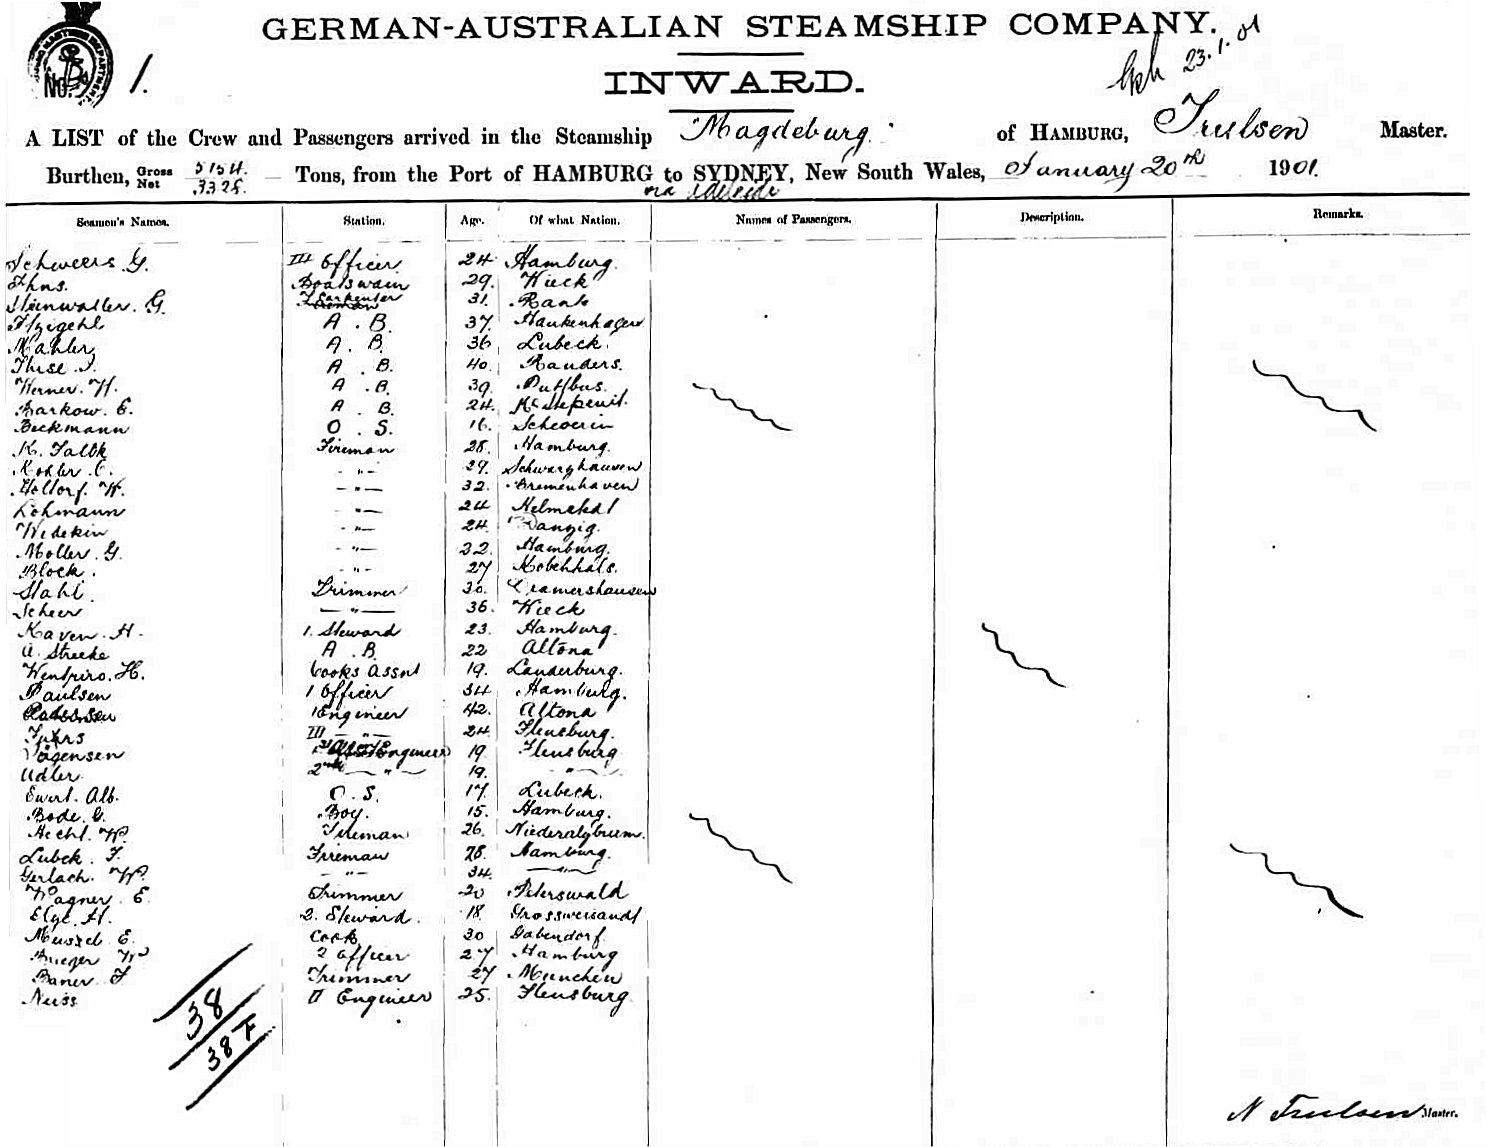 GERMAN-AUSTRALIAN STEAMSHIP COMPANY.
23.1.01
No. 1.
INWARD.
A LIST of the Crew and Passengers arrived in the Steamship "Magdeburg" of HAMBURG, Trulsen Master.
Burthen, Gross 5154. Net 3325. Tons, from the Port of HAMBURG to SYDNEY, New South Wales, January 20th 1901.
via Adelaide
Seamen's Names. Station. Age. Of what Nation. Names of Passengers. Description. Remarks.
Schweers. G. III Officer 24 Hamburg.
Ihns. Boatswain 29. Wieck
Steinwaller. G. Carpenter 31.
A. B. 37.
Mahler, A. B. 36 Lubeck.
Thise. J. A. B. 40. Randers.
Werner. W. A. B. 39. Puttbus.
Barkow. E. A. B. 24.
Beckmann O. S. 16. Schwerin
K. Falck Fireman 28. Hamburg.
Kohler. C. -"- 29. Schwarzhausen
Holtorf. W. -"- 32. Bremenhaven
Lohmann -"- 24 Helmstedt
Wedekin -"- 24. Danzig.
Moller. G. -"- 32. Hamburg.
Block. -"- 27
Stahl. Trimmer 30. Cramershausen
Scheer -"- 36. Wieck
Kaven. H. 1. Steward 23. Hamburg.
A. Streeke A. B. 22 Altona
H. Cooks Assnt 19. Lauderburg.
Paulsen 1 Officer 34 Hamburg.
1 Engineer 42. Altona
III -"- 24. Flensburg.
Jögensen Engineer 19 Flensburg
Adler 2nd -"- 19. -"-
Ewert. Alb. O. S. 17. Lubeck.
Bode. G. Boy. 15. Hamburg.
Hecht. W. Fireman 26.
Lubck. F. Fireman 28. Hamburg.
Gerlach. W. -"- 34. -"-
Wagner. E. Trimmer 20 Peterswald
Elge. H. 2. Steward. 18.
E. Cook 30 Gabendorf.
Brieger W 2 Officer 27 Hamburg
Baner. F Trimmer 27 Munchen
Neiss II Engineer 25. Flensburg.
38
38 F
N Trulsen Master.